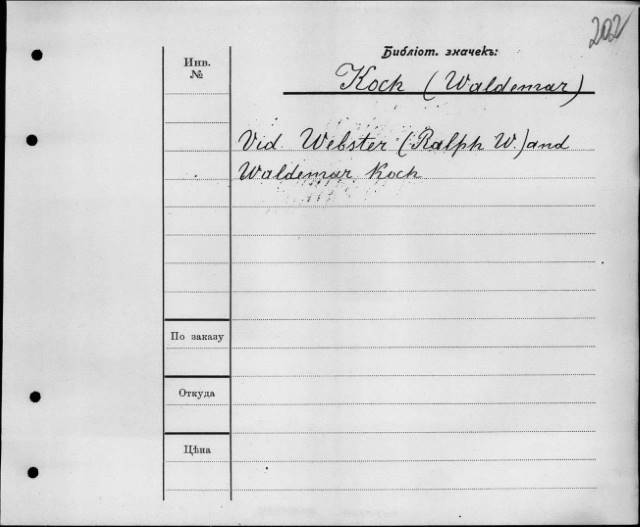 202
Библіот. значекъ:
Инв.
№
Koch (Waldemar)
Vid. Webster (Ralph W.) and
Waldemar Koch
По заказу
Откуда
Цѣна